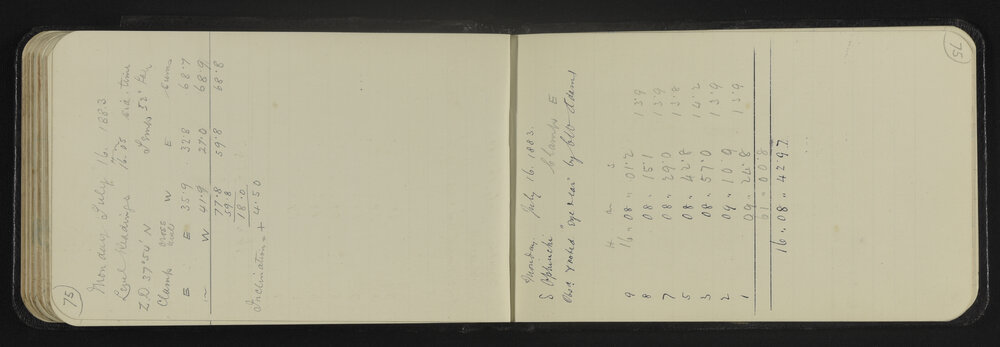 75
Monday July 16. 1883
Level Readings 16h 55m sid. time
Z.D. 37° 50' N Temp 52° Fa.
Clamp Cross level W E Sums
E E 35.9 32.8 68.7
W 41.9 27.0 68.9
77.8 59.8 68.8
59.8
18.0
Inclination = + 4.50
75
Monday, July 16. 1883.
δ Ophiuchi Clamp E
Obs'd eye near by
H m s
9 16 " 08 " 01.2 13.9
8 08 " 15.1 13.9
7 08 " 29.0 13.8
5 08 " 42.8 14.2
3 08 " 57.0 13.9
2 09 " 10.9 13.9
1 09 " 24.8
61 " 00.8
16 " 08 " 42.97